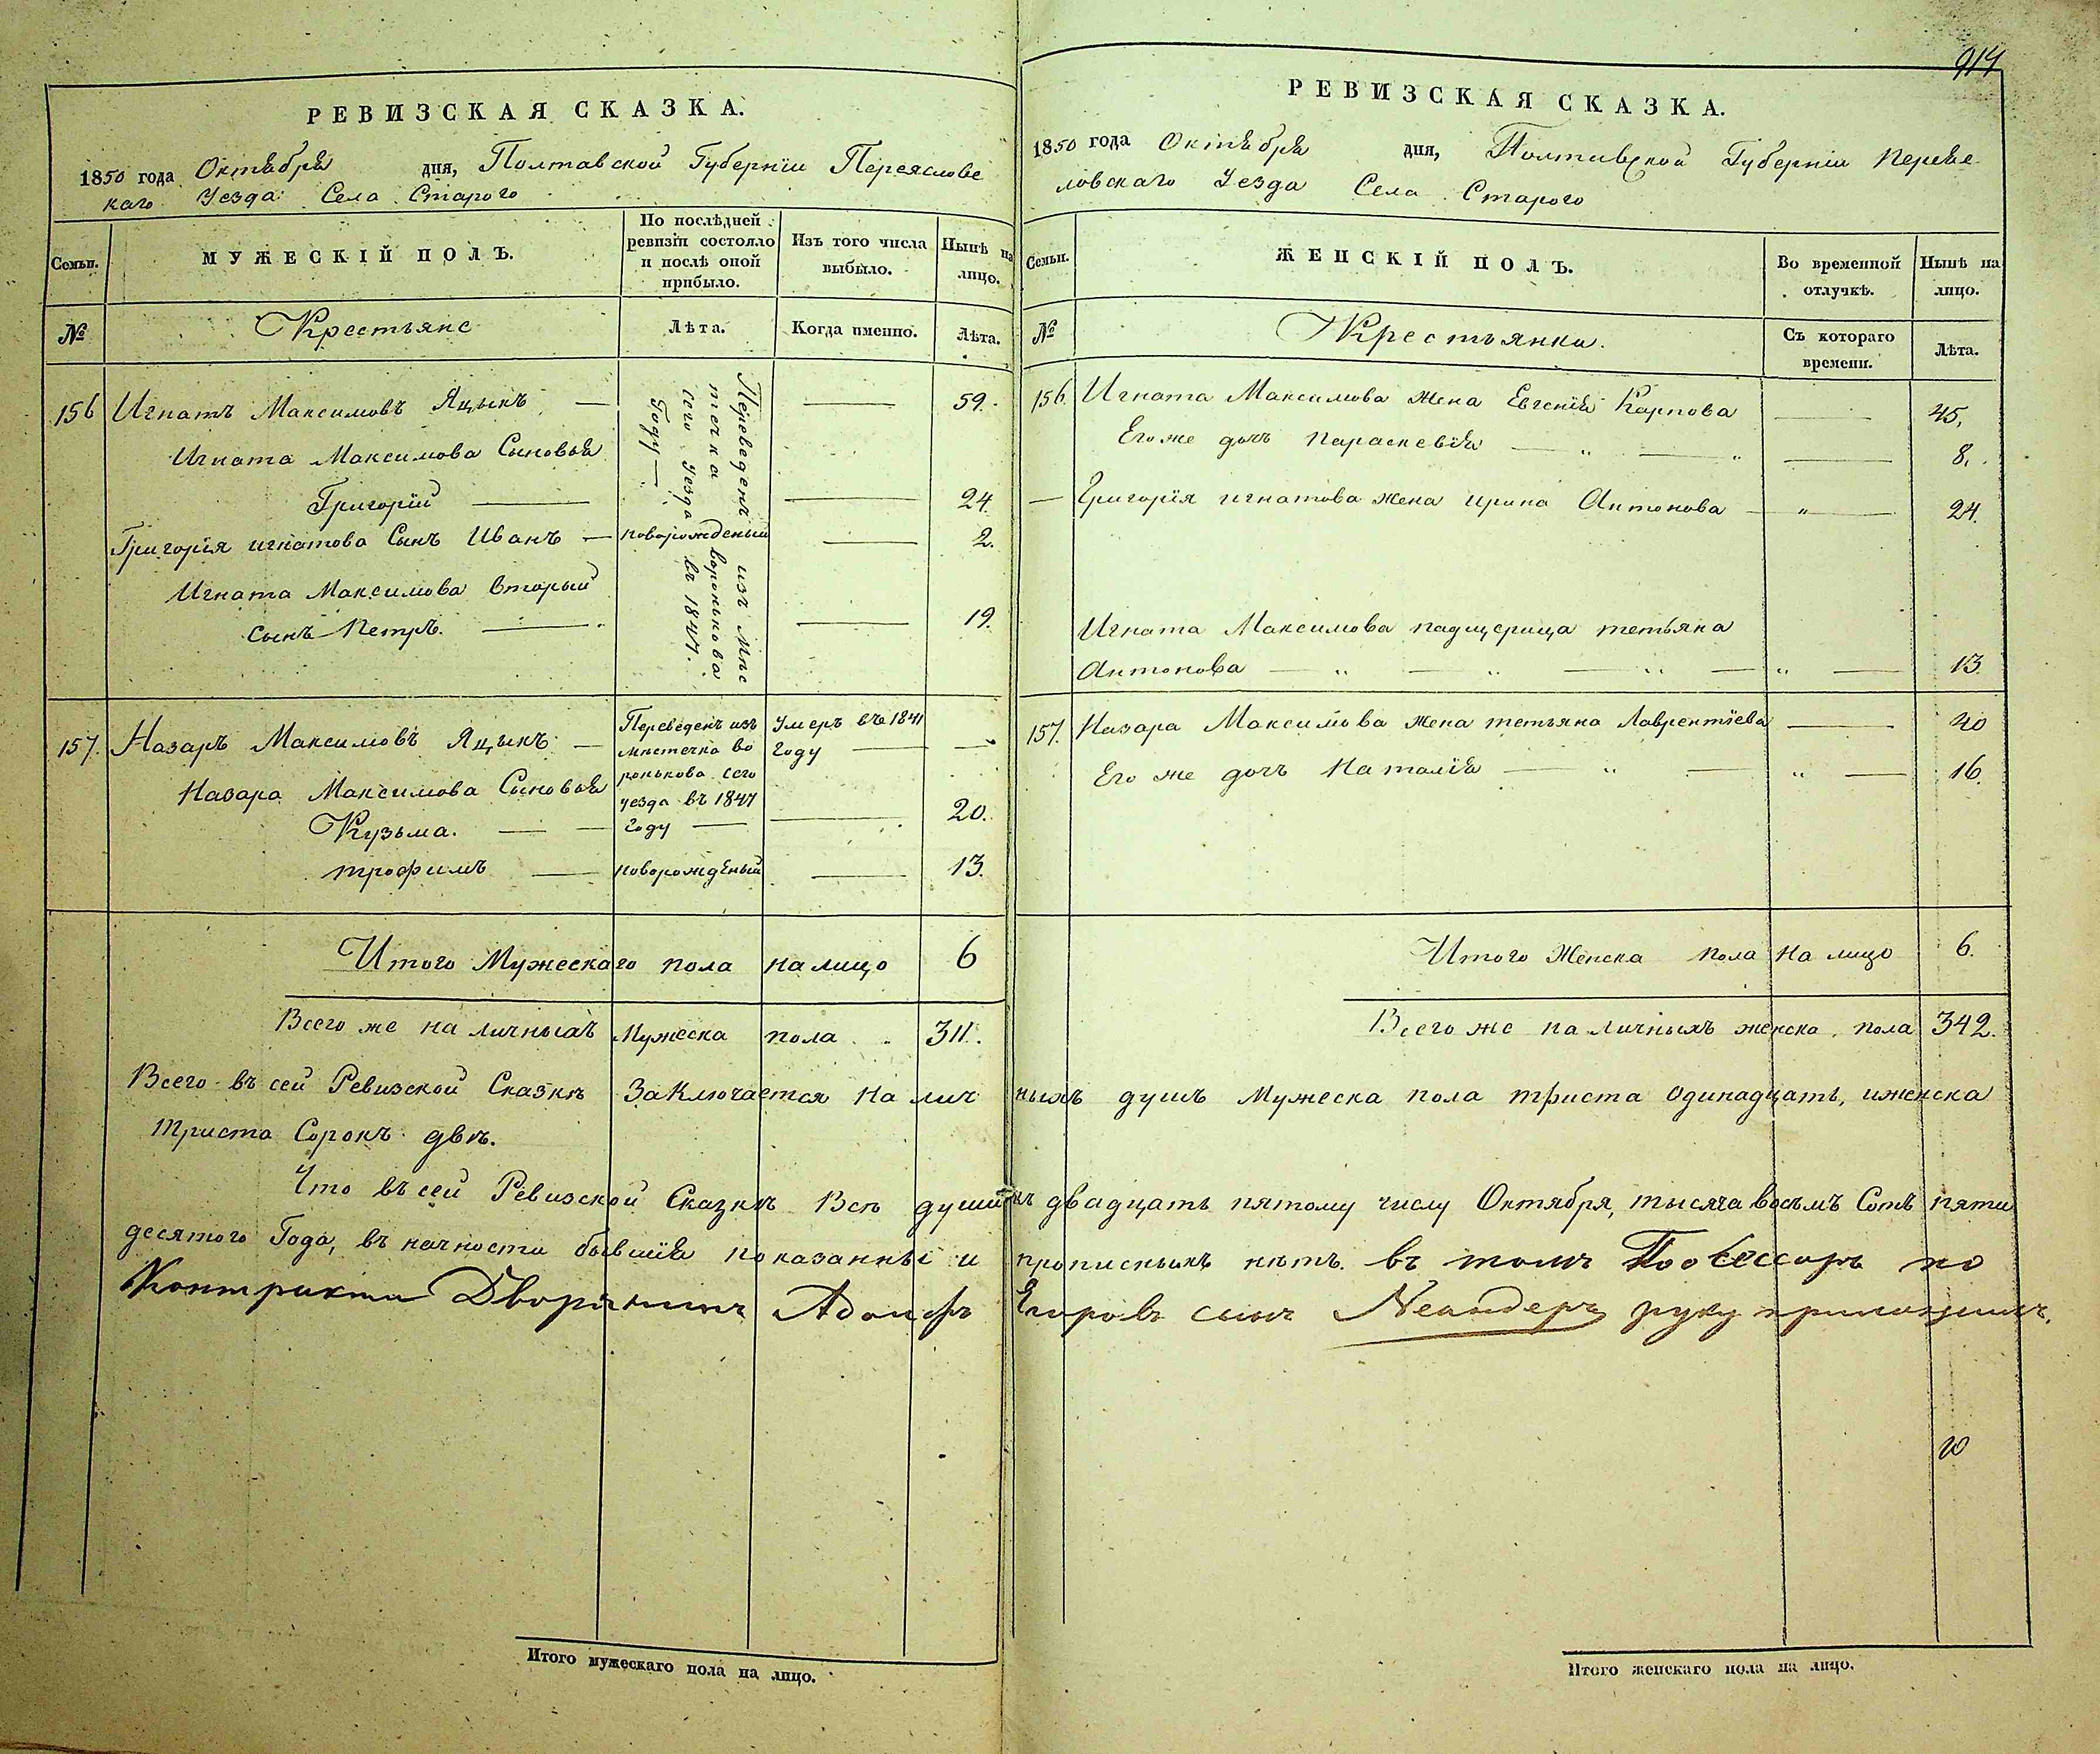 914
РЕВИЗСКАЯ СКАЗКА.
1850 года Октября дня, Полтавской Губернїи Переяслове
каго Уезда Села Старого
Семьи.
МУЖЕСКІЙ ПОЛЪ.
По послѣдней ревизіи состояло и послѣ оной прибыло.
Изъ того числа выбыло.
Нынѣ на лицо.
№
Крестьяне
Лѣта.
Когда именно.
Лѣта.
156 Игнатъ Максимовъ Яцыкъ — 59.
Переведенъ изъ Мѣс
течка воронькова
сего уезда въ 1847.
Году —
Игната Максимова Сыновья
Григорїй — 24.
Григорїя игнатова Сынъ Иванъ — новорожденый — 2.
Игната Максимова вторый
сынъ Петръ. — 19.
157. Назаръ Максимовъ Яцыкъ —
Переведенъ изъ
мѣстечка во
ронькова сего
уезда въ 1847
Году —
Умеръ въ 1841
Году —
Назара Максимова Сыновья
Кузьма. — 20.
трофимъ — новорожденый — 13.
Итого Мужескаго пола на лицо 6
Всего же на личныхъ Мужеска пола 311.
РЕВИЗСКАЯ СКАЗКА.
1850 года Октября дня, Полтавской Губернїи Перея
ловскаго Уезда Села Старого
Семьи.
ЖЕНСКІЙ ПОЛЪ.
Во временной отлучкѣ.
Нынѣ на лицо.
№
Крестьянки.
Съ котораго времени.
Лѣта.
156. Игната Максимова жена Евгенїя Карпова — 45,
Его же дочь параскевїя — 8.
— Григорїя игнатова жена ирина Антонова — 24.
Игната Максимова падщерица тетьяна
Антонова — 13
157. Назара Максимова жена тетьяна Лаврентїева — 40
Его же дочь Наталїя — 16.
Итого Женска пола На лицо 6.
Всего же на личныхъ женска пола 342.
Всего въ сей Ревизской Сказкѣ Заключается На лич ныхъ душъ Мужеска пола триста одинадцать, иженска
триста Сорокъ двѣ.
Что въ сей Ревизской Сказкѣ Всѣ души къ двадцать пятому числу Октября, тысяча восъмъ Сотъ пяти
десятого Года, въ начности бывшїя показанны и прописныхъ нѣтъ. въ томъ Посессоръ по
Контракти Дворянинъ Адольфъ Егоровъ сынъ Неандеръ руку приложилъ.
Итого мужескаго пола на лицо.
Итого женскаго пола на лицо.